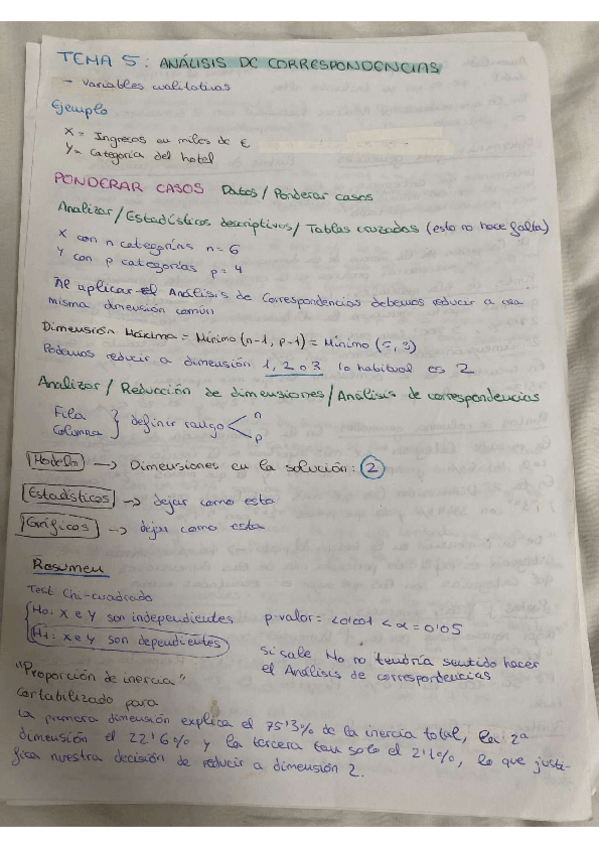 TEMA 5: ANÁLISIS DE CORRESPONDENCIAS
- Variables cualitativas
Ejemplo
X = Ingresos en miles de €
Y = Categoría del hotel
PONDERAR CASOS Datos / Ponderar casos
Analizar / Estadísticos descriptivos / Tablas cruzadas (esto no hace falta)
X con n categorías n = 6
Y con p categorías p = 4
Al aplicar el Análisis de Correspondencias debemos reducir a una
misma dimensión común
Dimensión Máxima = Mínimo (n-1, p-1) = Mínimo (5, 3)
Podemos reducir a dimensión 1, 2 o 3 lo habitual es 2
Analizar / Reducción de dimensiones / Análisis de correspondencias
Fila
Columna } definir rango < n p
Modelo → Dimensiones en la solución: 2
Estadísticos → dejar como esta
Gráficos → dejar como esta
Resumen
Test Chi-cuadrado
H0: X e Y son independientes p valor = <0'001 < α = 0'05
H1: X e Y son dependientes
si sale H0 no tendría sentido hacer
el Análisis de correspondencias
"Proporción de inercia"
Contabilizado para
La primera dimensión explica el 75'3% de la inercia total, la 2ª
dimensión el 22'6% y la tercera tan solo el 2'1%, lo que justi-
fica nuestra decisión de reducir a dimensión 2.